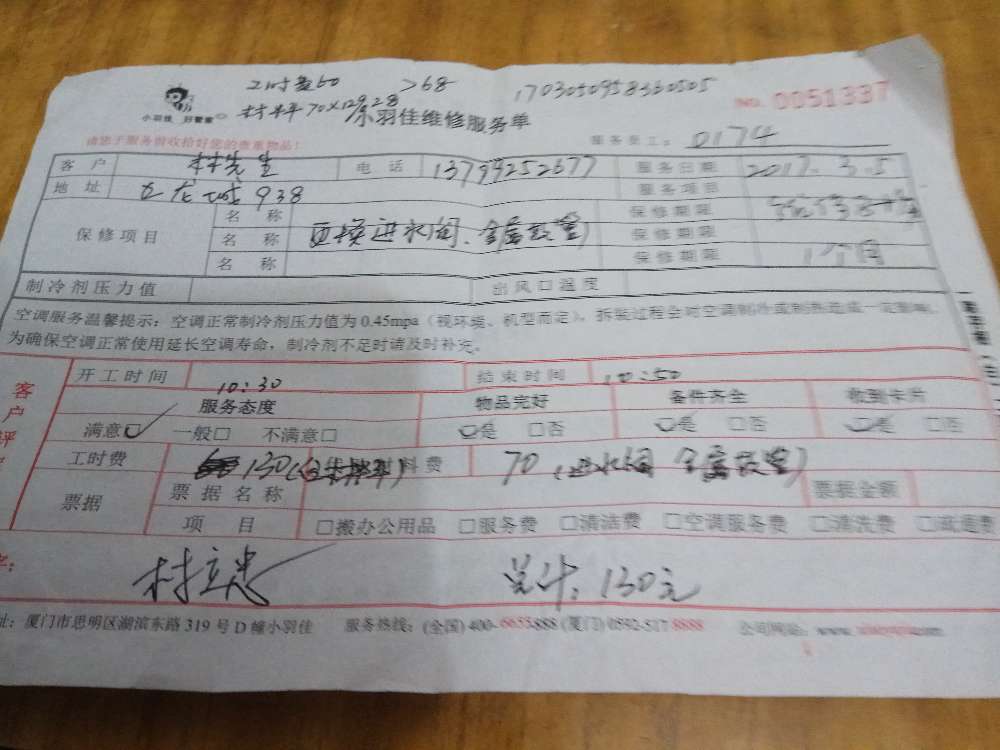 工时费60 >68 1703050958360505
材料 70×12%28
小羽佳 好管家 小羽佳维修服务单 NO. 0051337
请您于服务前收拾好您的贵重物品! 服务员工: 0174
客户 林先生 电话 13799252677 服务日期 2017.3.5
地址 九龙城938 服务项目
保修项目 名称 保修期限
名称 更换进水阀、金属软管 保修期限
名称 保修期限 1个月
制冷剂压力值 出风口温度
空调服务温馨提示:空调正常制冷剂压力值为0.45mpa(视环境、机型而定)。拆装过程会对空调制冷或制热造成一定影响。
为确保空调正常使用延长空调寿命,制冷剂不足时请及时补充。
客户评 开工时间 10:30 结束时间 10:50
服务态度 物品完好 备件齐全 收到卡片
满意☑ 一般□ 不满意□ □是 □否 □是 □否 □是 □否
工时费 130 材料费 70(进水阀 金属软管)
票据 票据名称 票据金额
项目 □搬办公用品 □服务费 □清洁费 □空调服务费 □清洗费 □疏通费
字: 林立忠 总计:130元
址:厦门市思明区湖滨东路319号D幢小羽佳 服务热线:(全国)400-6655888(厦门)0592-5178888 公司网站:www.